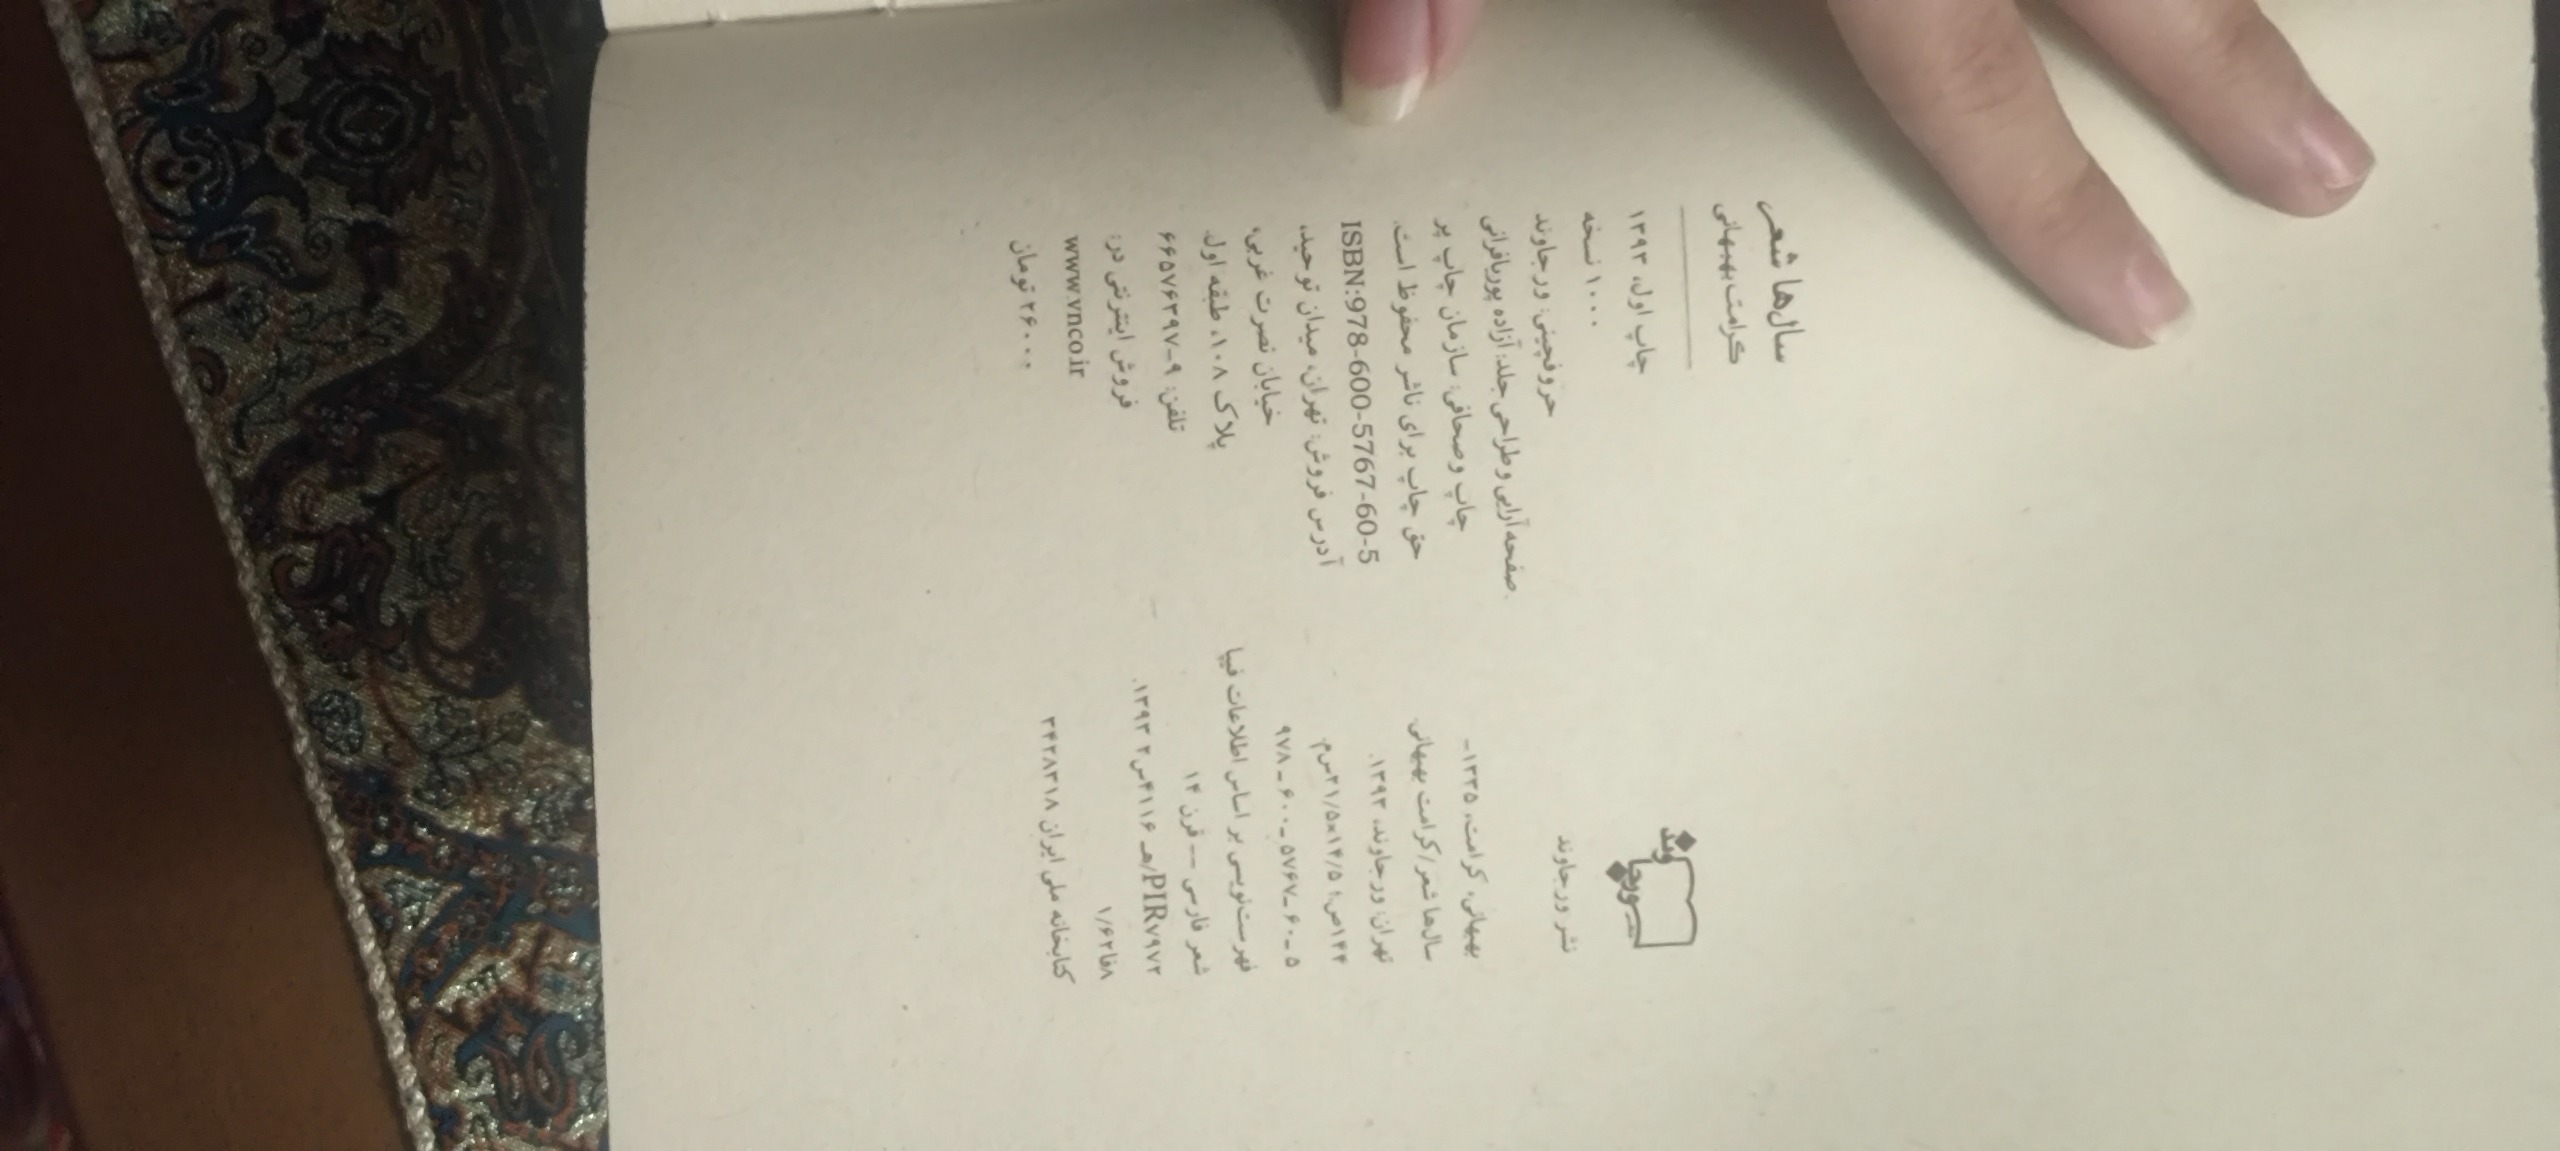 سال‌ها شعر
کرامت بهبهانی
چاپ اول، ۱۳۹۳
۱۰۰۰ نسخه
حروفچینی: ورجاوند
صفحه‌آرایی و طراحی جلد: آزاده پوربافرانی
چاپ و صحافی: سازمان چاپ پر
حق چاپ برای ناشر محفوظ است.
ISBN:978-600-5767-60-5
آدرس فروش: تهران، میدان توحید،
خیابان نصرت غربی،
پلاک ۱۰۸، طبقه اول.
تلفن: ۹-۶۶۵۷۶۳۹۷
فروش اینترنتی در:
www.vnco.ir
۲۶۰۰۰ تومان
ورجاوند
نشر ورجاوند
بهبهانی، کرامت، ۱۳۳۵-
سال‌ها شعر/ کرامت بهبهانی.
تهران: ورجاوند، ۱۳۹۳.
۱۴۴ص؛ ۱۴/۵×۲۱/۵س‌م.
۵-۶۰-۵۷۶۷-۶۰۰-۹۷۸
فهرست‌نویسی بر اساس اطلاعات فیپا
شعر فارسی -- قرن ۱۴
PIR۷۹۷۲/هـ ۴۱۱۶س۲ ۱۳۹۳.
۸فا۱/۶۲
کتابخانه ملی ایران ۳۴۲۸۳۱۸